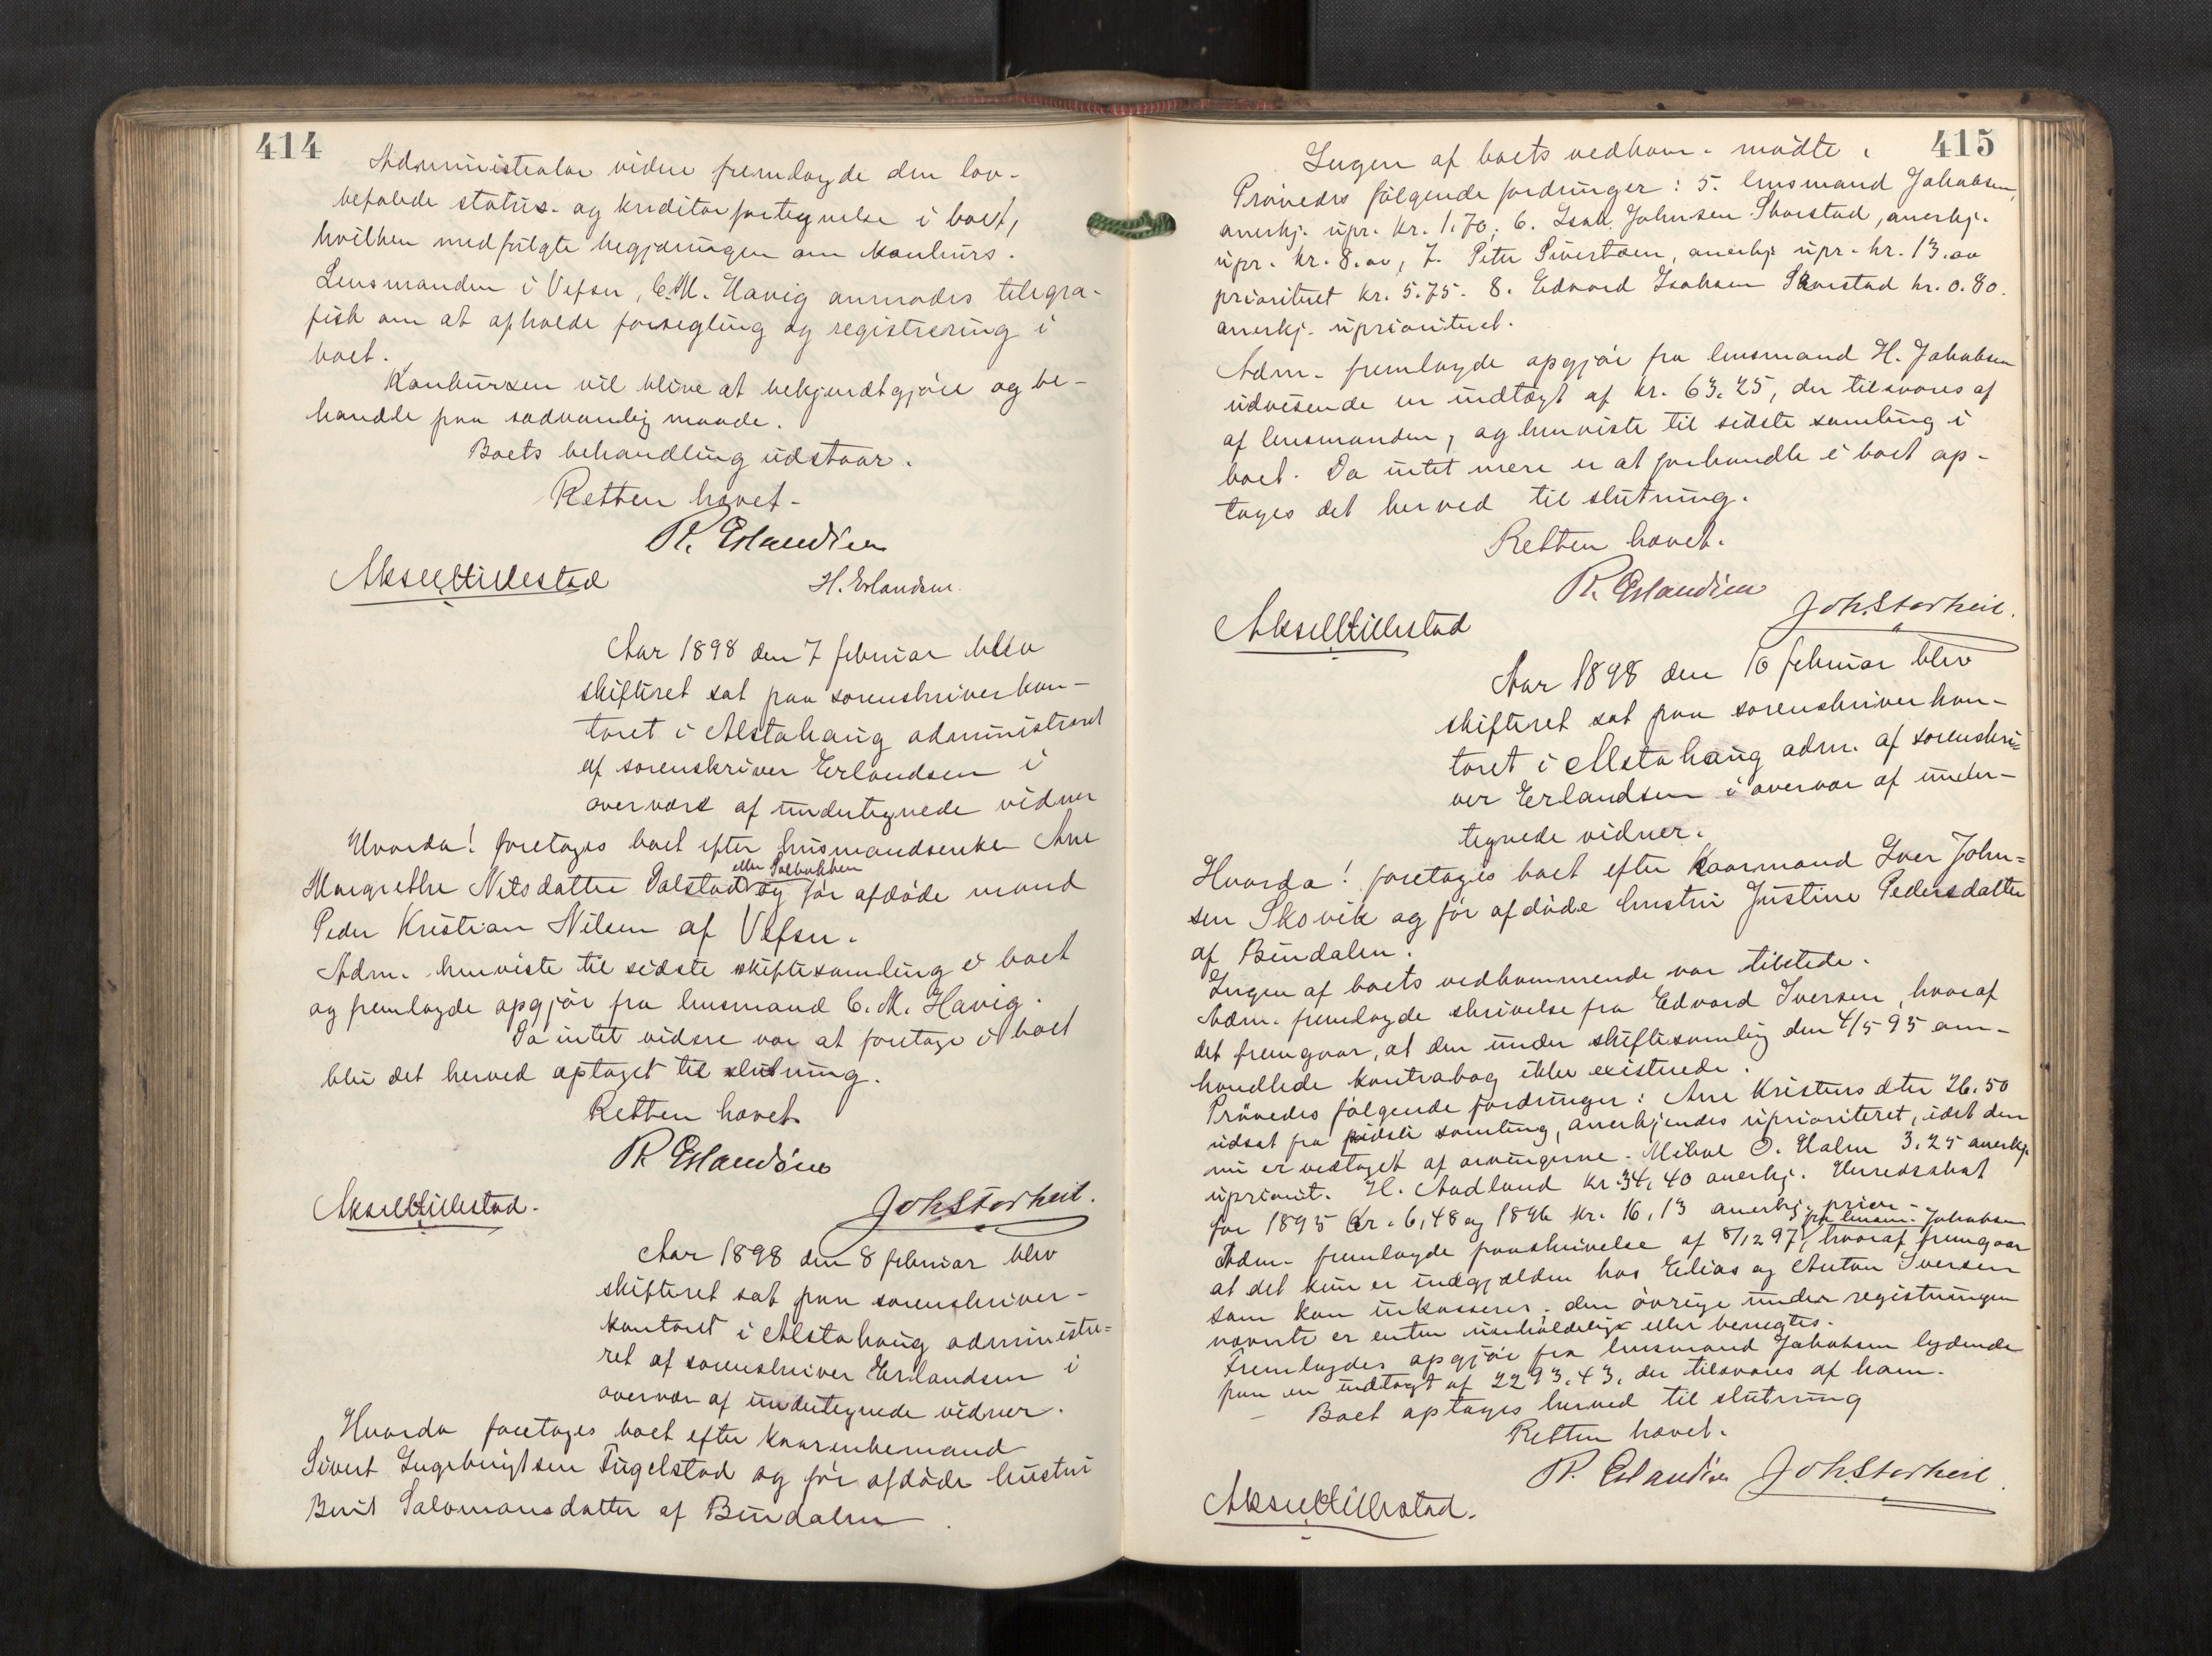 414
Administrator videre fremlagde den lov-
befalede status- og kreditorfortegnelse i boet,
hvilken medfulgte begjæringen om konkurs.
Lensmanden i Vefsn, C. M. Havig anmodes telegra-
fisk om at afholde forsegling og registrering i
boet.
Konkursen vil blive at bekjendtgjöre og be-
handle paa sædvanlig maade.
Boets behandling udstaar.
Retten hævet.
R. Erlandsen
Aksel Hillestad
H. Erlandsen.
Aar 1898 den 7 februar blev
skifteret sat paa sorenskriverkon-
toret i Alstahaug administreret
af sorenskriver Erlandsen i
overvære af undertegnede vidner
Hvorda! foretoges boet efter husmandsenke Ane
eller Dalbakken
Margrethe Nilsdatter Dalstad og för afdöde mand
Peder Kristian Nilsen af Vefsn.
Adm. henviste til sidste skiftesamling i boet
og fremlagde opgjör fra lensmand C. M. Havig.
Da intet videre var at foretage i boet
blev det herved optaget til slutning.
Retten hævet.
R Erlandsen
Aksel Hillestad.
Joh. Storheil.
Aar 1898 den 8 februar blev
skifteret sat paa sorenskriver-
kontoret i Alstahaug administre=
ret af sorenskriver Erlandsen i
overvær af undertegnede vidner.
Hvorda foretoges boet efter kaarenkemand
Sivert Ingebrigtsen Fugelstad og för afdöde hustru
Berit Salomonsdatter af Bindalen
415
Ingen af boets vedkom. mödte.
Prövedes fölgende fordringer: 5. lensmand Jakobsen,
anerkj. upr. kr. 1.70, 6. Isak Johnsen Skarstad, anerkj.
upr. kr. 8.00, 7. Peter Sivertsen, anerkj. upr. kr. 13.00
prioritet kr. 5.75. 8. Edvard Isaksen Skarstad kr. 0.80.
anerkj. uprioriteret.
Adm. fremlagde opgjör fra lensmand H. Jakobsen
udvisende en indtægt af kr. 63.25, der tilsvares af
af lensmanden, og henviste til sidste samling i
boet. Da intet mere er at forhandle i boet op-
tages det herved til slutning.
Retten hævet.
R. Erlandsen
Joh. Storheil.
Aksel Hillestad
Aar 1898 den 10 februar blev
skifteret sat paa sorenskriverkon-
toret i Alstahaug adm. af sorenskri=
ver Erlandsen i overvær af under-
tegnede vidner.
Hvorda! foretoges boet efter Kaarmand Iver John=
sen Skovik og för afdöde hustru Justine Pedersdatter
af Bindalen.
Ingen af boets vedkommende var tilstede.
Adm. fremlagde skrivelse fra Edvard Iversen, hvoraf
det fremgaar, at den under skiftesamling den 4/5 95 om-
handlede kontrabog ikke existerede.
Prövedes fölgende fordringer: Ane Kristens dtr 26.50
udsat fra sidste samling, anerkjendes uprioriteret, idet den
nu er vedtaget af arvingerne. Mikal O. Halm 3.25 anerkj.
upriorit. H. Aadland kr. 34,40 anerkj. Herredsskat
for 1895 Kr. 6,48 og 1896 kr. 16,13 anerkj. prior-
fra lensm. Jakobsen
Adm. fremlagde paaskrivelse af 8/12 97, hvoraf fremgaar
at det kun er indgjælden hos Elias og Anton Iversen
som kan inkasseres; den övrige under registreringen
nævnte er enten uerholdelig eller benegtes.
Fremlagdes opgjör fra lensmand Jakobsen lydende
paa en indtægt af 2293,43, der tilsvares af ham.
Boet optages herved til slutning
Retten hævet.
R. Erlandsen Joh. Storheil.
Aksel Hillestad.